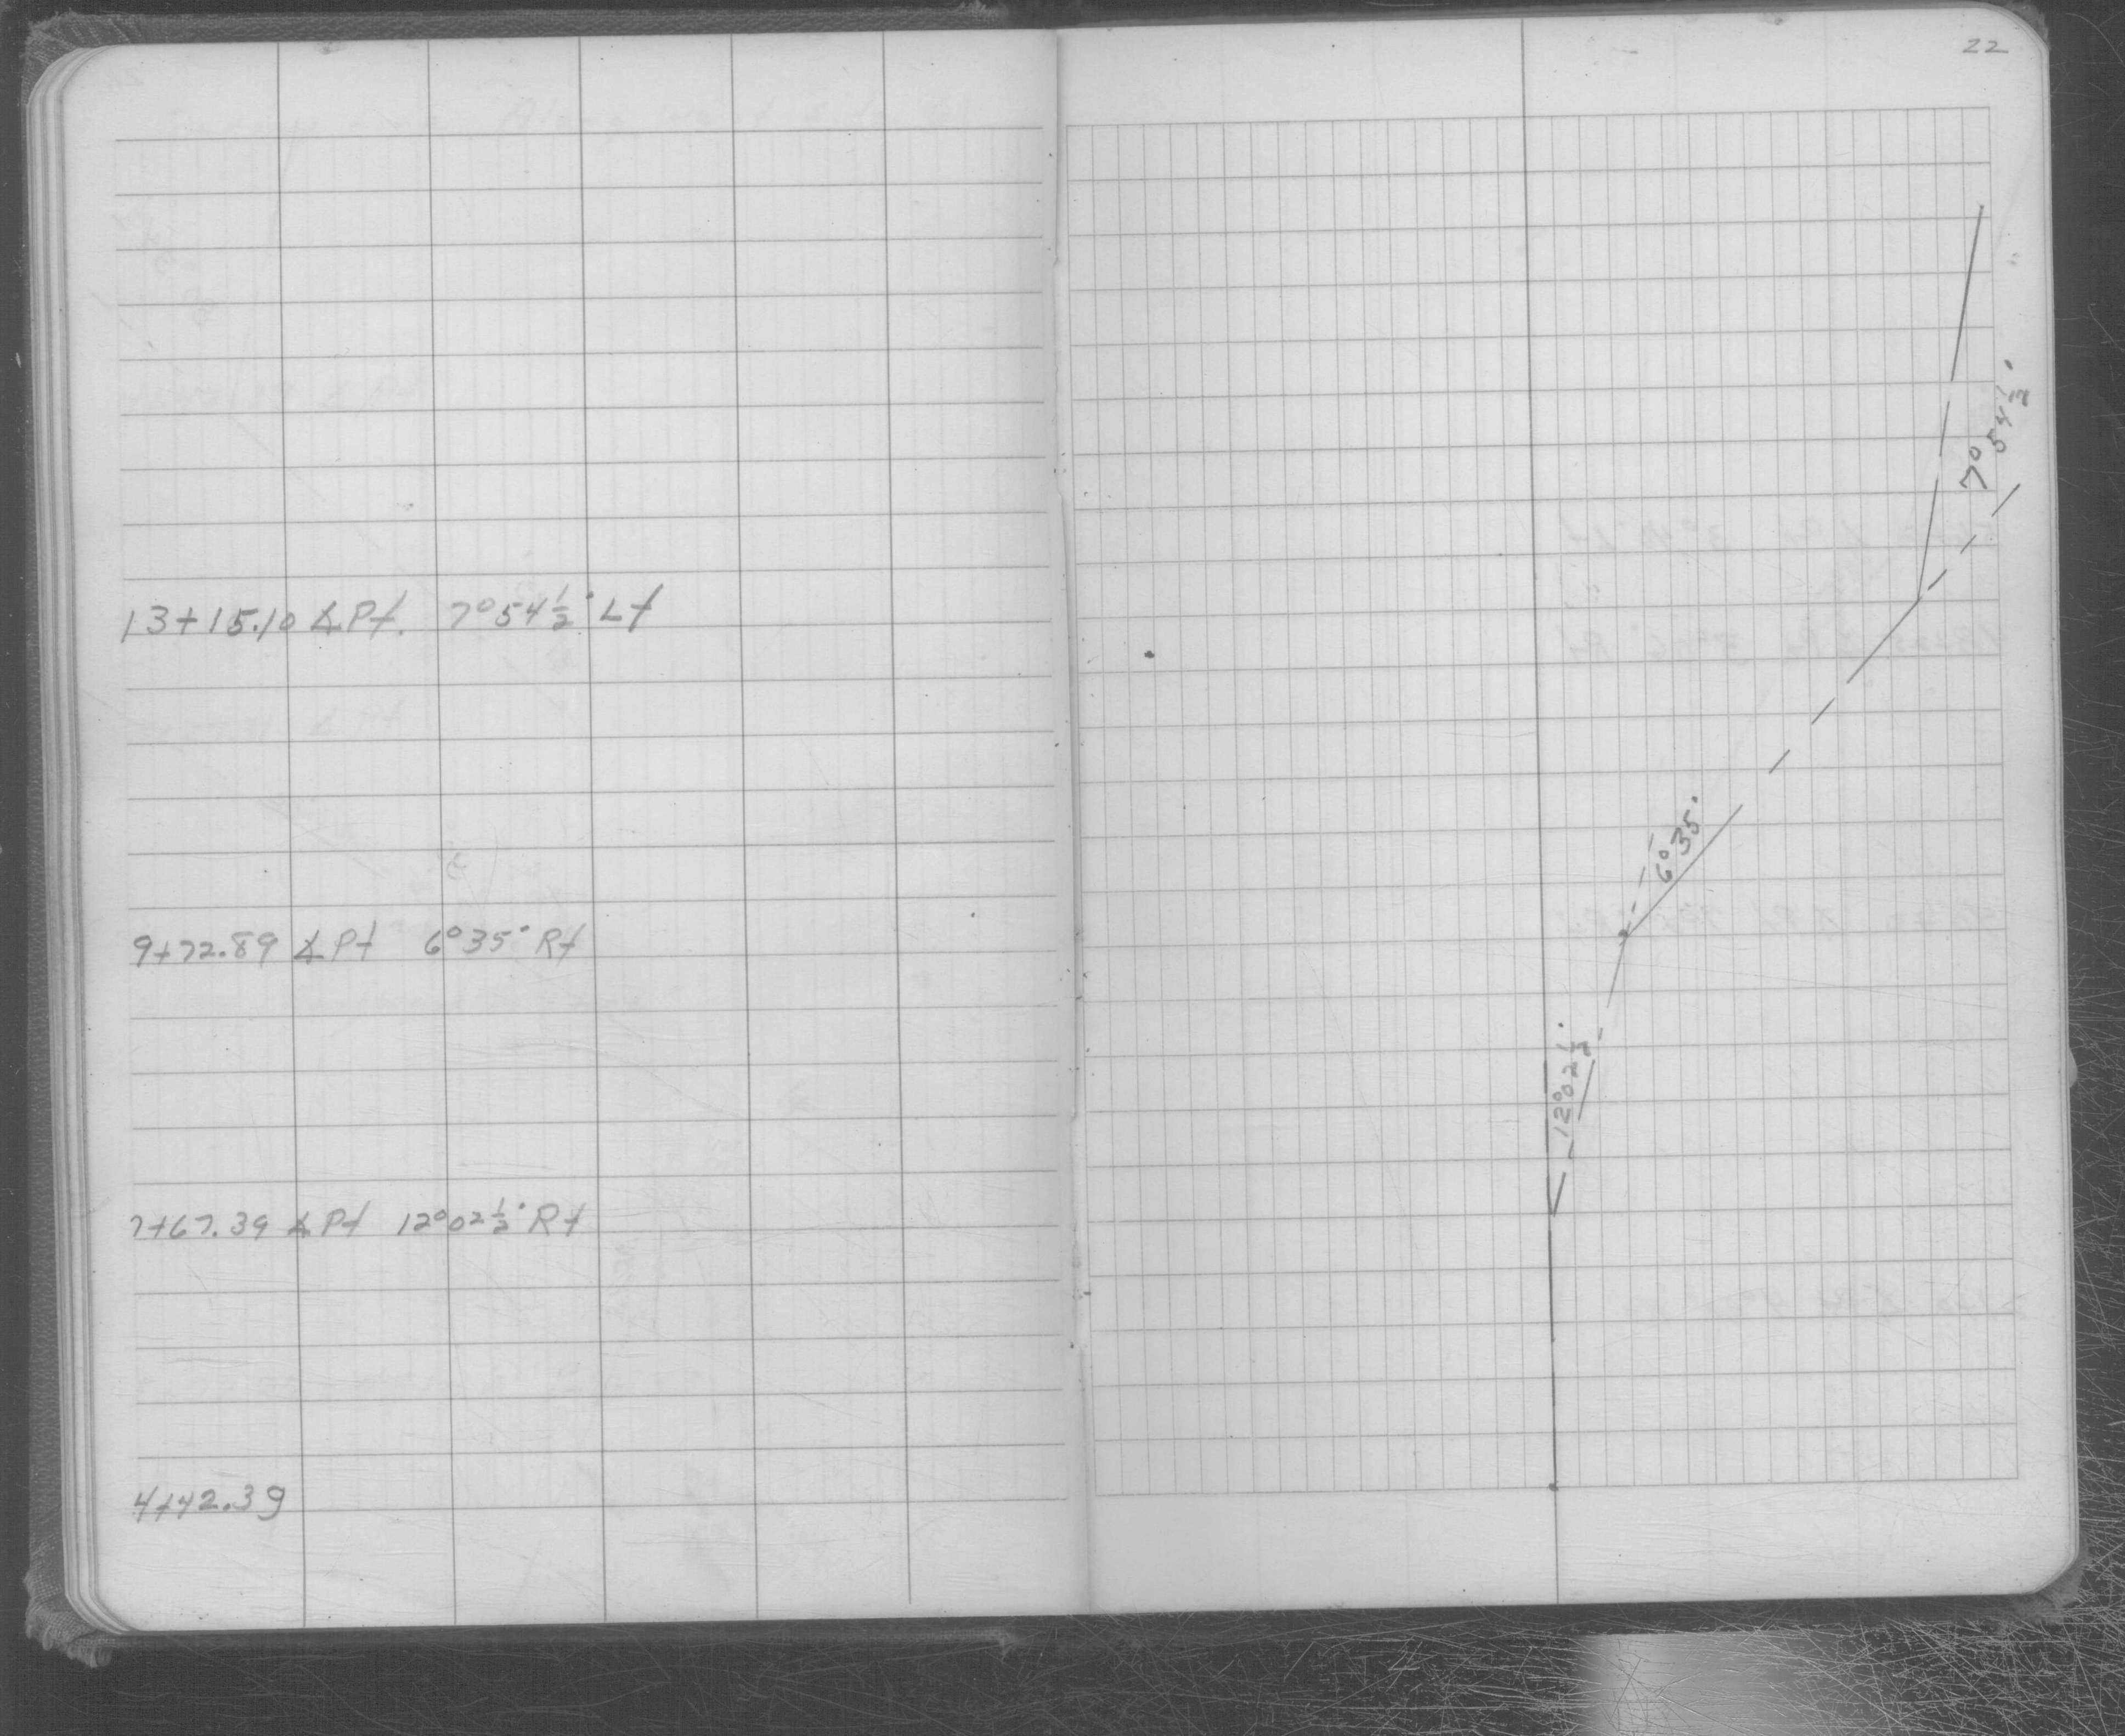 22
13+15.10 ∡Pt. 7°54½' Lt
9+72.89 ∡Pt 6°35' Rt
7+67.39 ∡Pt 12°02½' Rt
4+42.39
7°54½'
6°35'
12°02½'